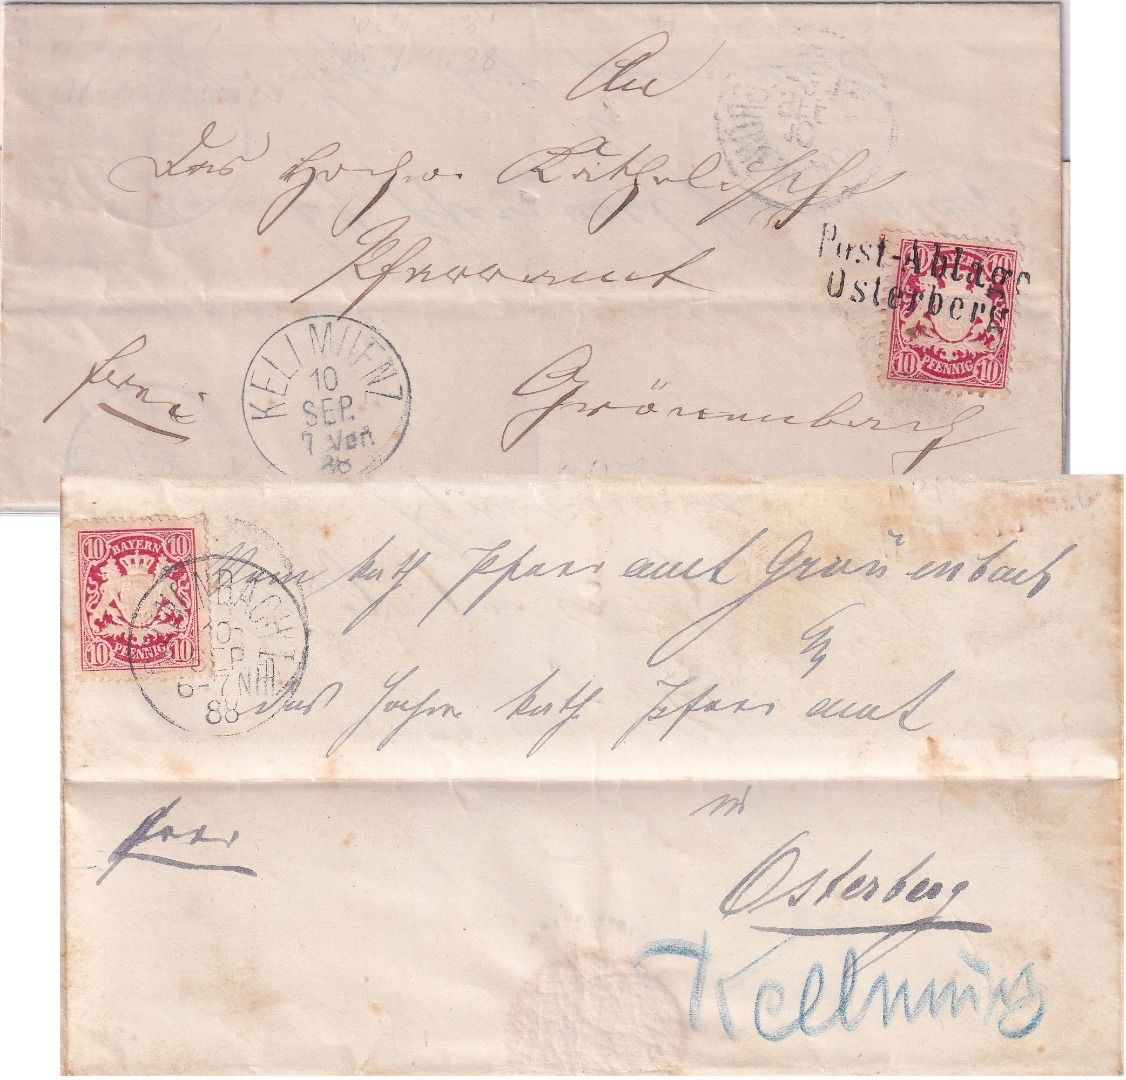 An
Das Hochw. Katholische
Pfarramt
frei
Grönenbach
Post-Ablage
Osterberg
10 10
10 PFENNIG 10
KELLMUENZ
10
SEP.
7 Vor
86
10 BAYERN 10
10 PFENNIG 10
10
SEP.
6-7 NM
88
Vom kath Pfarramt Grönenbach
das Hochw. kath. Pfarramt
in
Osterberg
Kellmünz